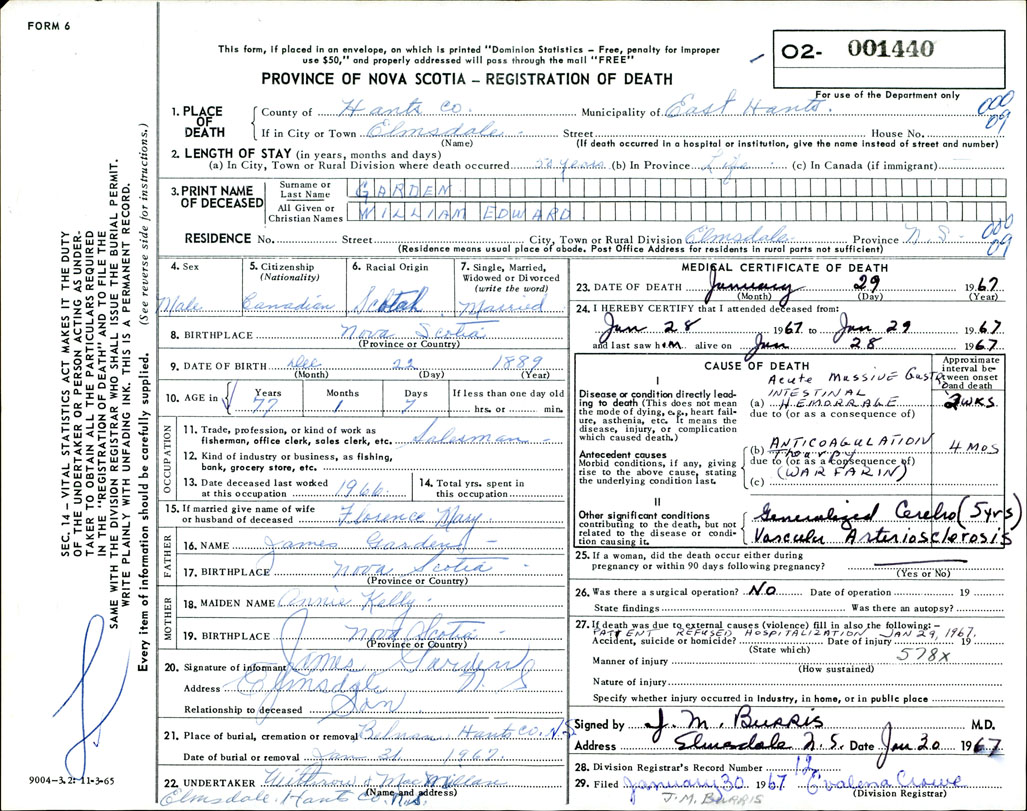 FORM 6
This form, if placed in an envelope, on which is printed "Dominion Statistics – Free, penalty for improper
use $50," and properly addressed will pass through the mail "FREE"
O2- 001440
PROVINCE OF NOVA SCOTIA – REGISTRATION OF DEATH
For use of the Department only
000
09
1. PLACE OF DEATH County of Hants Co. Municipality of East Hants.
If in City or Town Elmsdale - Street House No.
(Name) (If death occurred in a hospital or institution, give the name instead of street and number)
2. LENGTH OF STAY (in years, months and days)
(a) In City, Town or Rural Division where death occurred 50 years (b) In Province Life (c) In Canada (if immigrant)
3. PRINT NAME OF DECEASED
Surname or Last Name GARDEN
All Given or Christian Names WILLIAM EDWARD
RESIDENCE No. Street City, Town or Rural Division Elmsdale Province N.S.
000
09
(Residence means usual place of abode. Post Office Address for residents in rural parts not sufficient)
4. Sex Male
5. Citizenship (Nationality) Canadian
6. Racial Origin Scotch
7. Single, Married, Widowed or Divorced (write the word) Married
8. BIRTHPLACE Nova Scotia
(Province or Country)
9. DATE OF BIRTH Dec 22 1889
(Month) (Day) (Year)
10. AGE in Years 77 Months 1 Days 7 If less than one day old hrs. or min.
OCCUPATION
11. Trade, profession, or kind of work as
fisherman, office clerk, sales clerk, etc. Salesman -
12. Kind of industry or business, as fishing,
bank, grocery store, etc.
13. Date deceased last worked at this occupation 1966
14. Total yrs. spent in this occupation
15. If married give name of wife
or husband of deceased Florence Mary
FATHER
16. NAME James Garden -
17. BIRTHPLACE Nova Scotia
(Province or Country)
MOTHER
18. MAIDEN NAME Annie Kelly.
19. BIRTHPLACE Nova Scotia -
(Province or Country)
20. Signature of informant James Garden
Address Elmsdale N S
Relationship to deceased Son
21. Place of burial, cremation or removal Hants Co. N.S
Date of burial or removal Jan 31 1967
22. UNDERTAKER Withrow & MacMillan
(Name and address)
Elmsdale. Hants Co. N.S.
MEDICAL CERTIFICATE OF DEATH
23. DATE OF DEATH January 29 1967
(Month) (Day) (Year)
24. I HEREBY CERTIFY that I attended deceased from:
Jan 28 1967 to Jan 29 1967
and last saw him alive on Jan 28 1967
CAUSE OF DEATH
Approximate interval between onset and death
I
Disease or condition directly leading to death (This does not mean
the mode of dying, e.g., heart failure, asthenia, etc. It means the
disease, injury, or complication
which caused death.)
Acute Massive Gastro
INTESTINAL
(a) HEMORRAGE 2 WKS
due to (or as a consequence of)
Antecedent causes
Morbid conditions, if any, giving
rise to the above cause, stating
the underlying condition last.
(b) ANTICOAGULATION Therapy 4 MOS
due to (or as a consequence of)
(WARFARIN)
(c)
II
Other significant conditions
contributing to the death, but not
related to the disease or condition causing it.
Generalized Cerebro (5yrs)
Vascular Arteriosclerosis
25. If a woman, did the death occur either during
pregnancy or within 90 days following pregnancy?
(Yes or No)
26. Was there a surgical operation? NO Date of operation 19
State findings Was there an autopsy?
27. If death was due to external causes (violence) fill in also the following: –
PATIENT REFUSED HOSPITALIZATION JAN 29, 1967.
Accident, suicide or homicide? Date of injury 19
(State which) 578X
Manner of injury
(How sustained)
Nature of injury
Specify whether injury occurred in Industry, in home, or in public place
Signed by J. M. BURRIS M.D.
Address Elmsdale N.S. Date Jan 30 1967
28. Division Registrar's Record Number 12
29. Filed January 30 1967 Evalena Crowe
(Division Registrar)
J.M. BURRIS
SEC. 14 – VITAL STATISTICS ACT MAKES IT THE DUTY
OF THE UNDERTAKER OR PERSON ACTING AS UNDER-
TAKER TO OBTAIN ALL THE PARTICULARS REQUIRED
IN THE "REGISTRATION OF DEATH" AND TO FILE THE
SAME WITH THE DIVISION REGISTRAR WHO SHALL ISSUE THE BURIAL PERMIT.
WRITE PLAINLY WITH UNFADING INK. THIS IS A PERMANENT RECORD.
Every item of information should be carefully supplied. (See reverse side for instructions.)
9004-3.2: 11-3-65